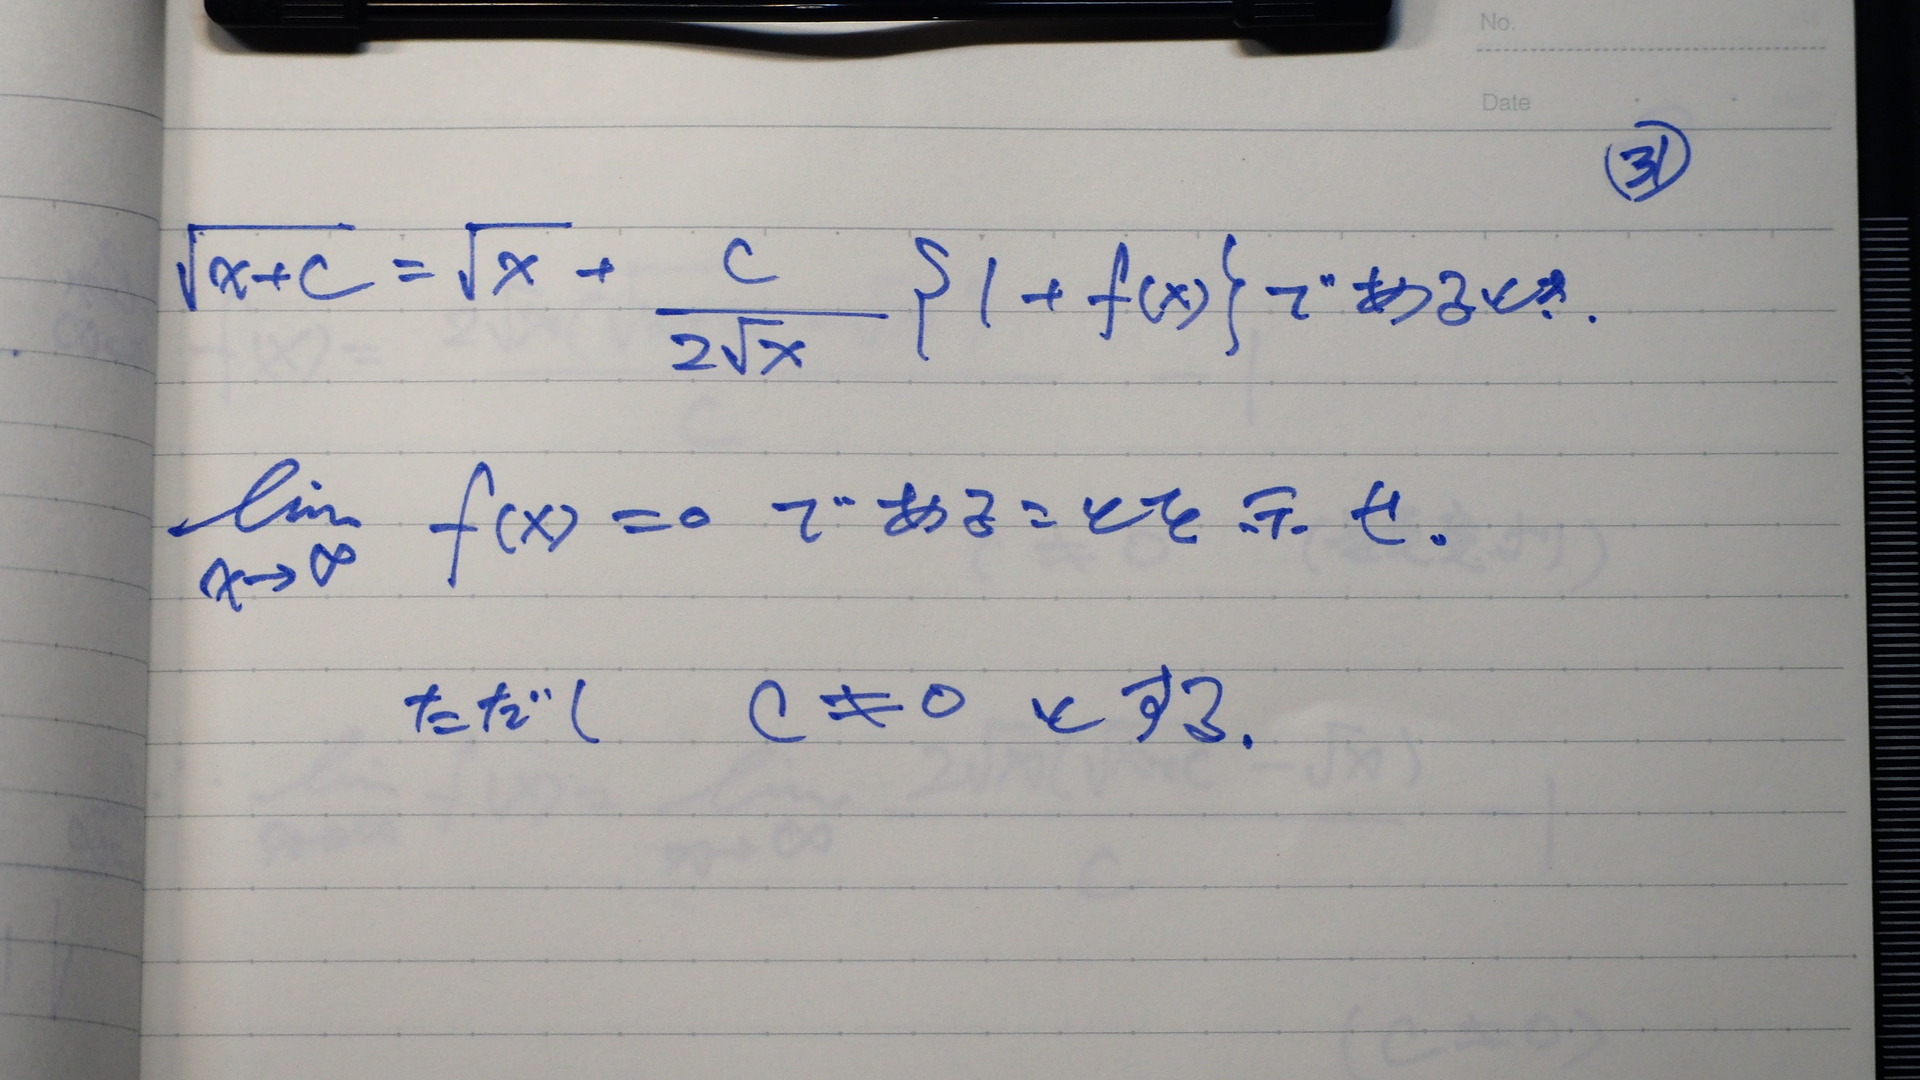 No.
Date
㉛
√x+c = √x + c/2√x {1 + f(x)} であるとき.
lim x→∞ f(x) = 0 であることを示せ.
ただし c ≠ 0 とする.